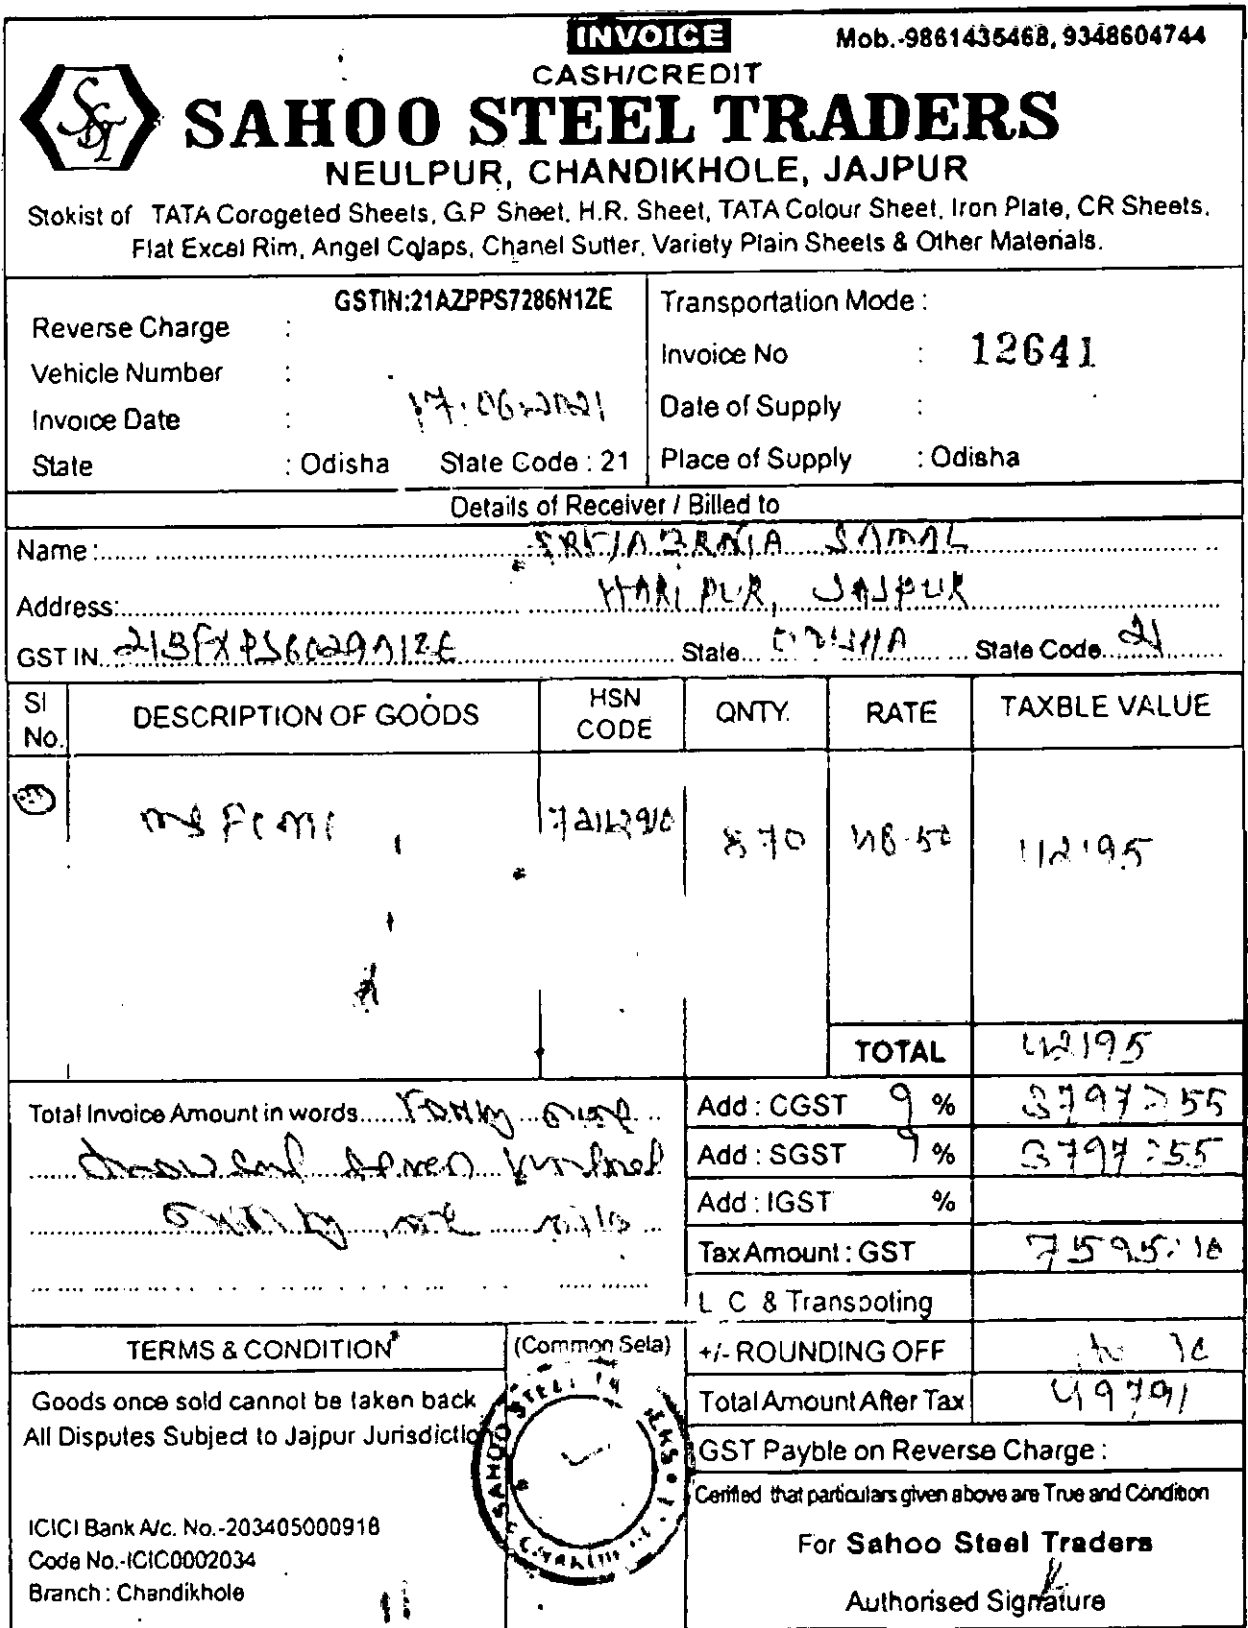 INVOICE
Mob.-9861435468, 9348604744
CASH/CREDIT
SAHOO STEEL TRADERS
NEULPUR, CHANDIKHOLE, JAJPUR
Stokist of TATA Corogeted Sheets, G.P Sheet, H.R. Sheet, TATA Colour Sheet, Iron Plate, CR Sheets,
Flat Excel Rim, Angel Colaps, Chanel Sutter, Variety Plain Sheets & Other Materials.
GSTIN:21AZPPS7286N1ZE
Reverse Charge :
Vehicle Number :
Invoice Date : 17.06.2021
State : Odisha State Code : 21
Transportation Mode :
Invoice No : 12641
Date of Supply :
Place of Supply : Odisha
Details of Receiver / Billed to
Name : SAMAL
Address: HARIPUR, JAJPUR
GST IN State State Code 21
SI No. DESCRIPTION OF GOODS HSN CODE QNTY. RATE TAXBLE VALUE
MS 870 48.50 42195
TOTAL 42195
Total Invoice Amount in words
thousand seven hundred
Add : CGST 9 % 3797=55
Add : SGST 9 % 3797=55
Add : IGST %
Tax Amount : GST 7595.10
L C & Transpoting
+/- ROUNDING OFF 10
Total Amount After Tax 49791
GST Payble on Reverse Charge :
TERMS & CONDITION
Goods once sold cannot be taken back
All Disputes Subject to Jajpur Jurisdiction
ICICI Bank A/c. No.-203405000918
Code No.-ICIC0002034
Branch : Chandikhole
(Common Sela)
SAHOO STEEL
Cerified that particulars given above are True and Condition
For Sahoo Steel Traders
Authorised Signature